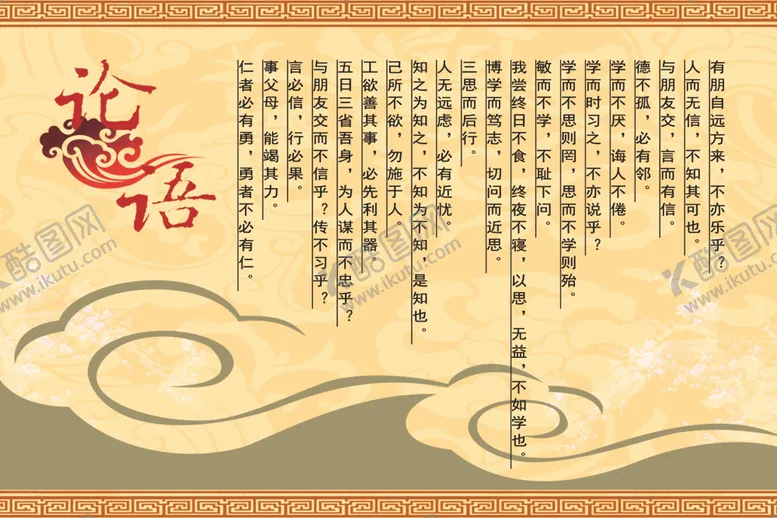 论语
有朋自远方来，不亦乐乎？
人而无信，不知其可也。
与朋友交，言而有信。
德不孤，必有邻。
学而不厌，诲人不倦。
学而时习之，不亦说乎？
学而不思则罔，思而不学则殆。
敏而不学，不耻下问。
我尝终日不食，终夜不寝，以思，无益，不如学也。
博学而笃志，切问而近思。
三思而后行。
人无远虑，必有近忧。
知之为知之，不知为不知，是知也。
己所不欲，勿施于人。
工欲善其事，必先利其器。
五日三省吾身，为人谋而不忠乎？
与朋友交而不信乎？传不习乎？
言必信，行必果。
事父母，能竭其力。
仁者必有勇，勇者不必有仁。
酷图网
www.ikutu.com
酷图网
www.ikutu.com
酷图网
www.ikutu.com